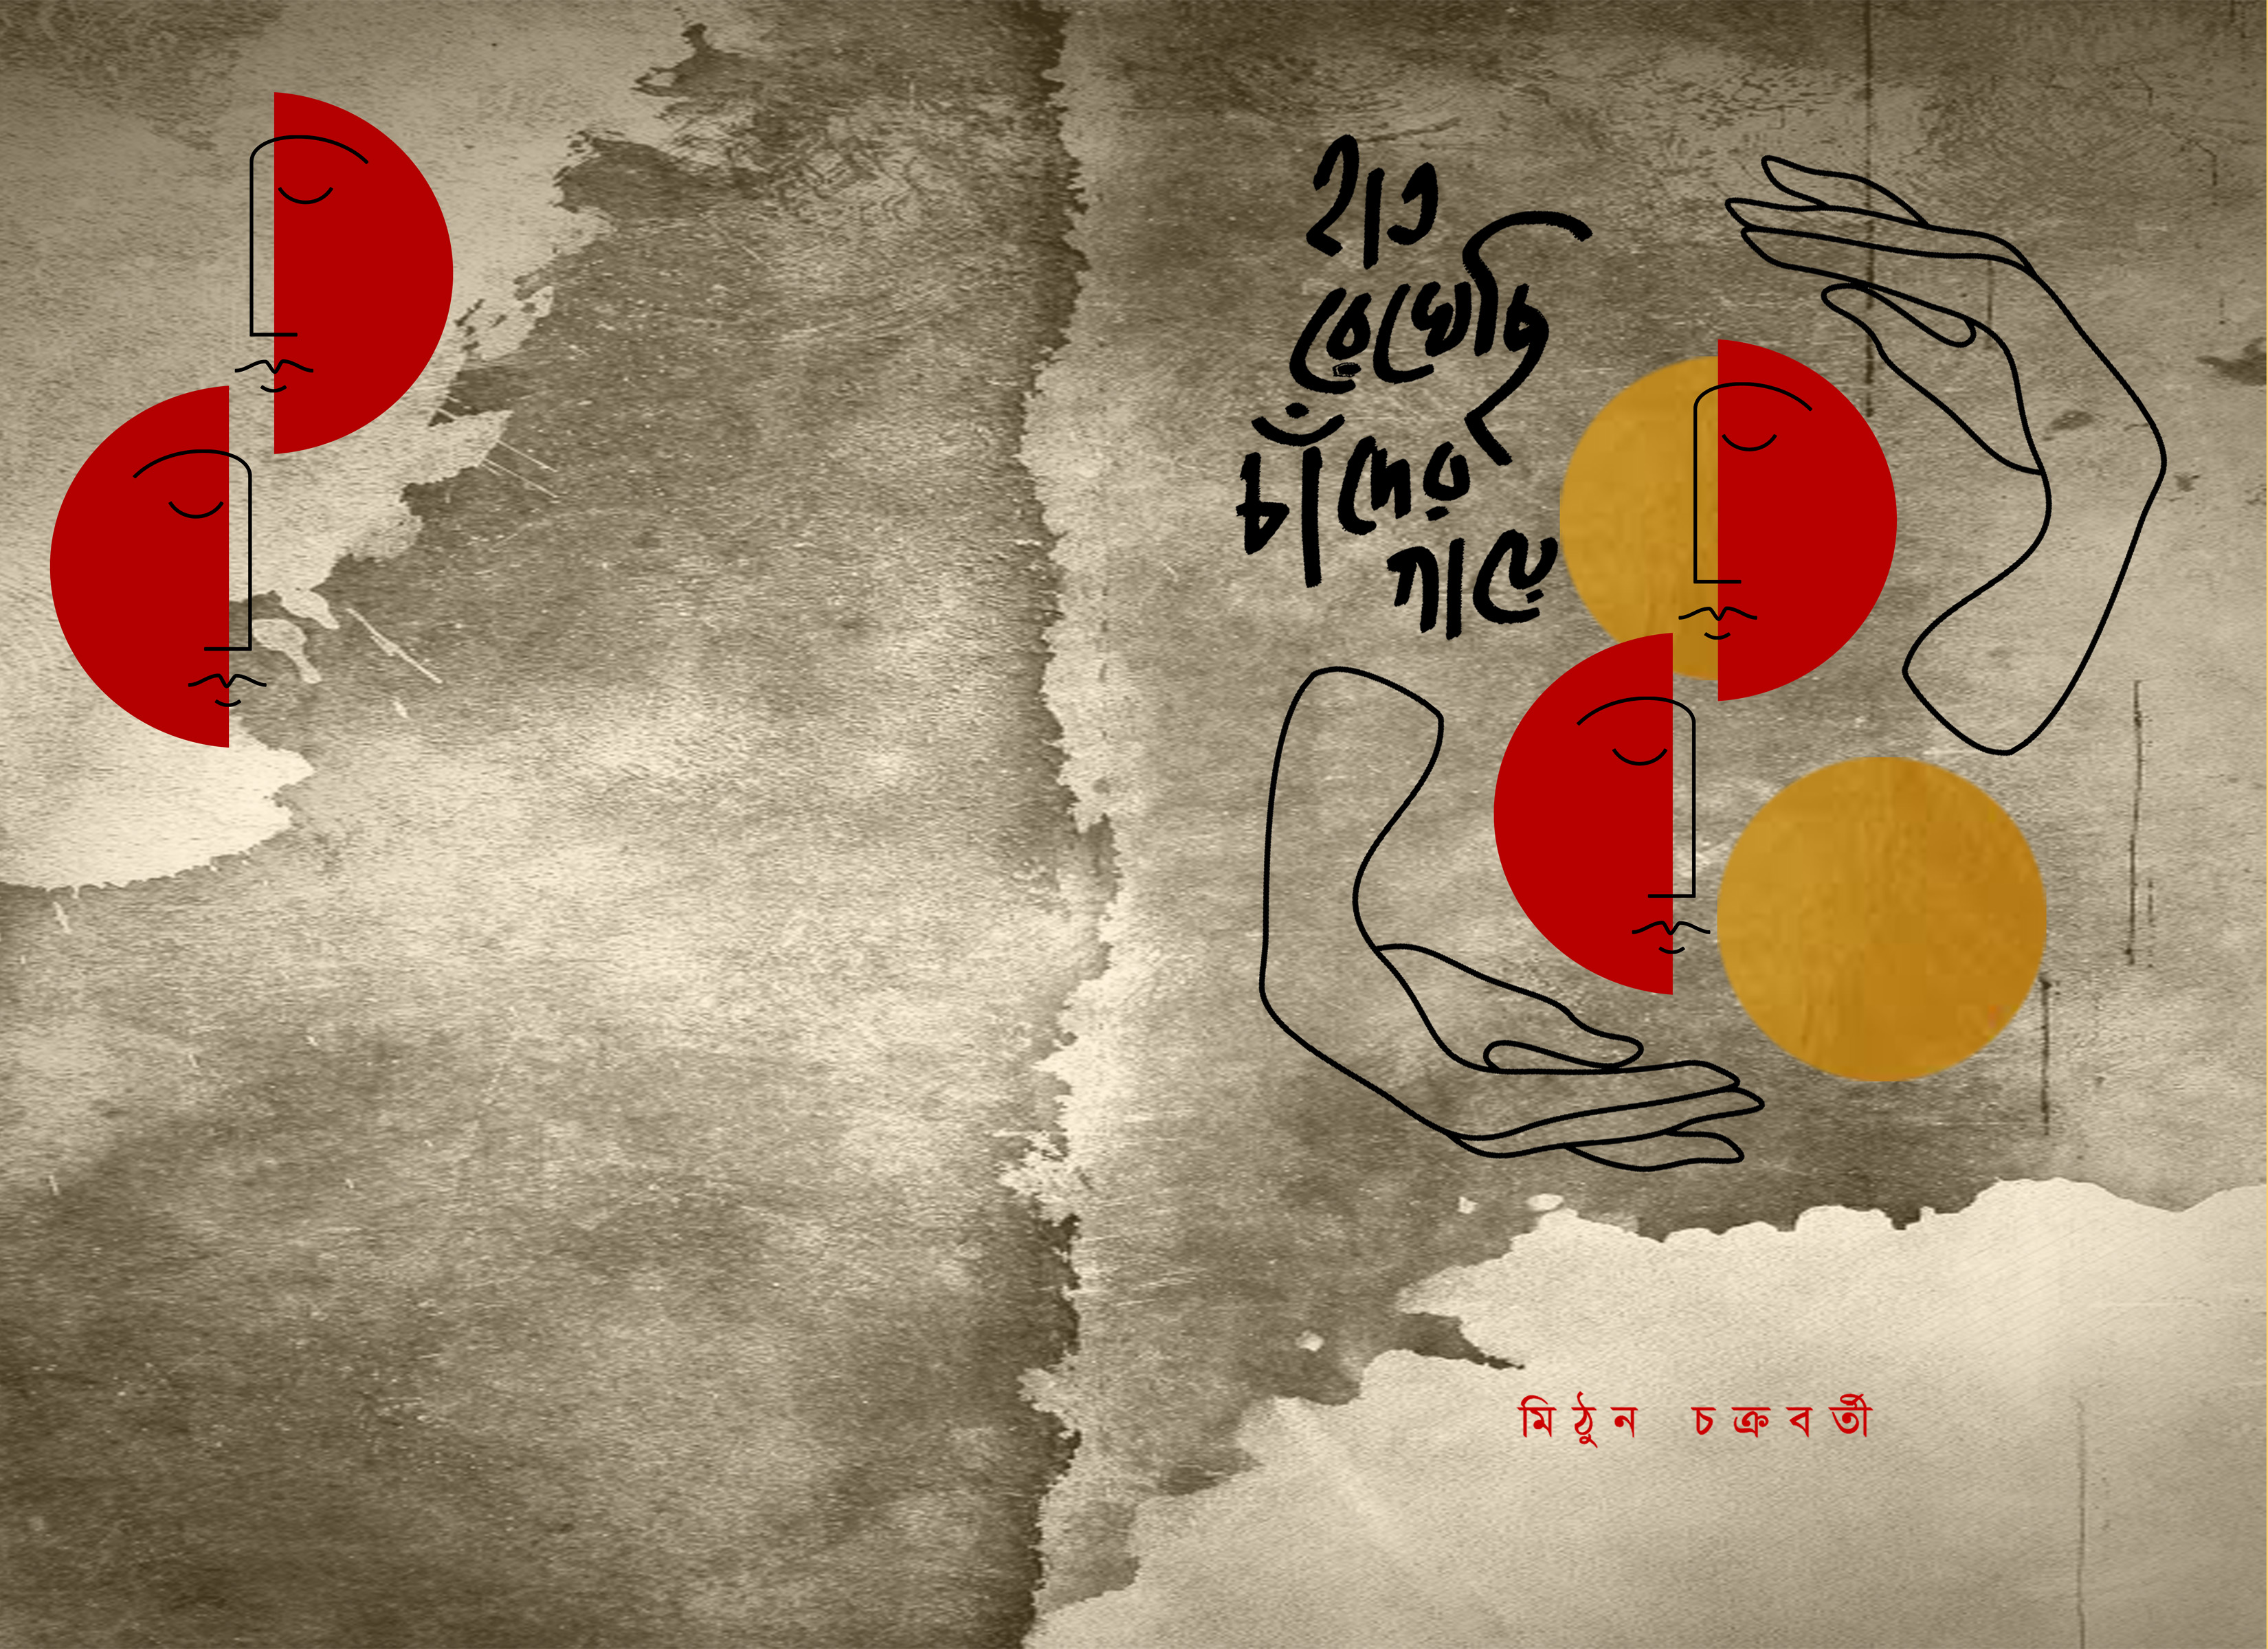 হাত
রেখেছি
চাঁদের
গায়ে
মিঠুন চক্রবর্তী